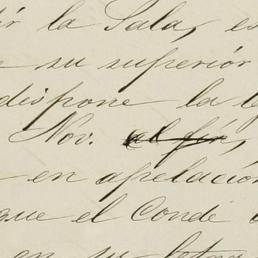 la Sala, es
su superiór
dispone la
Nov.
en apelación
que el Conde
en su